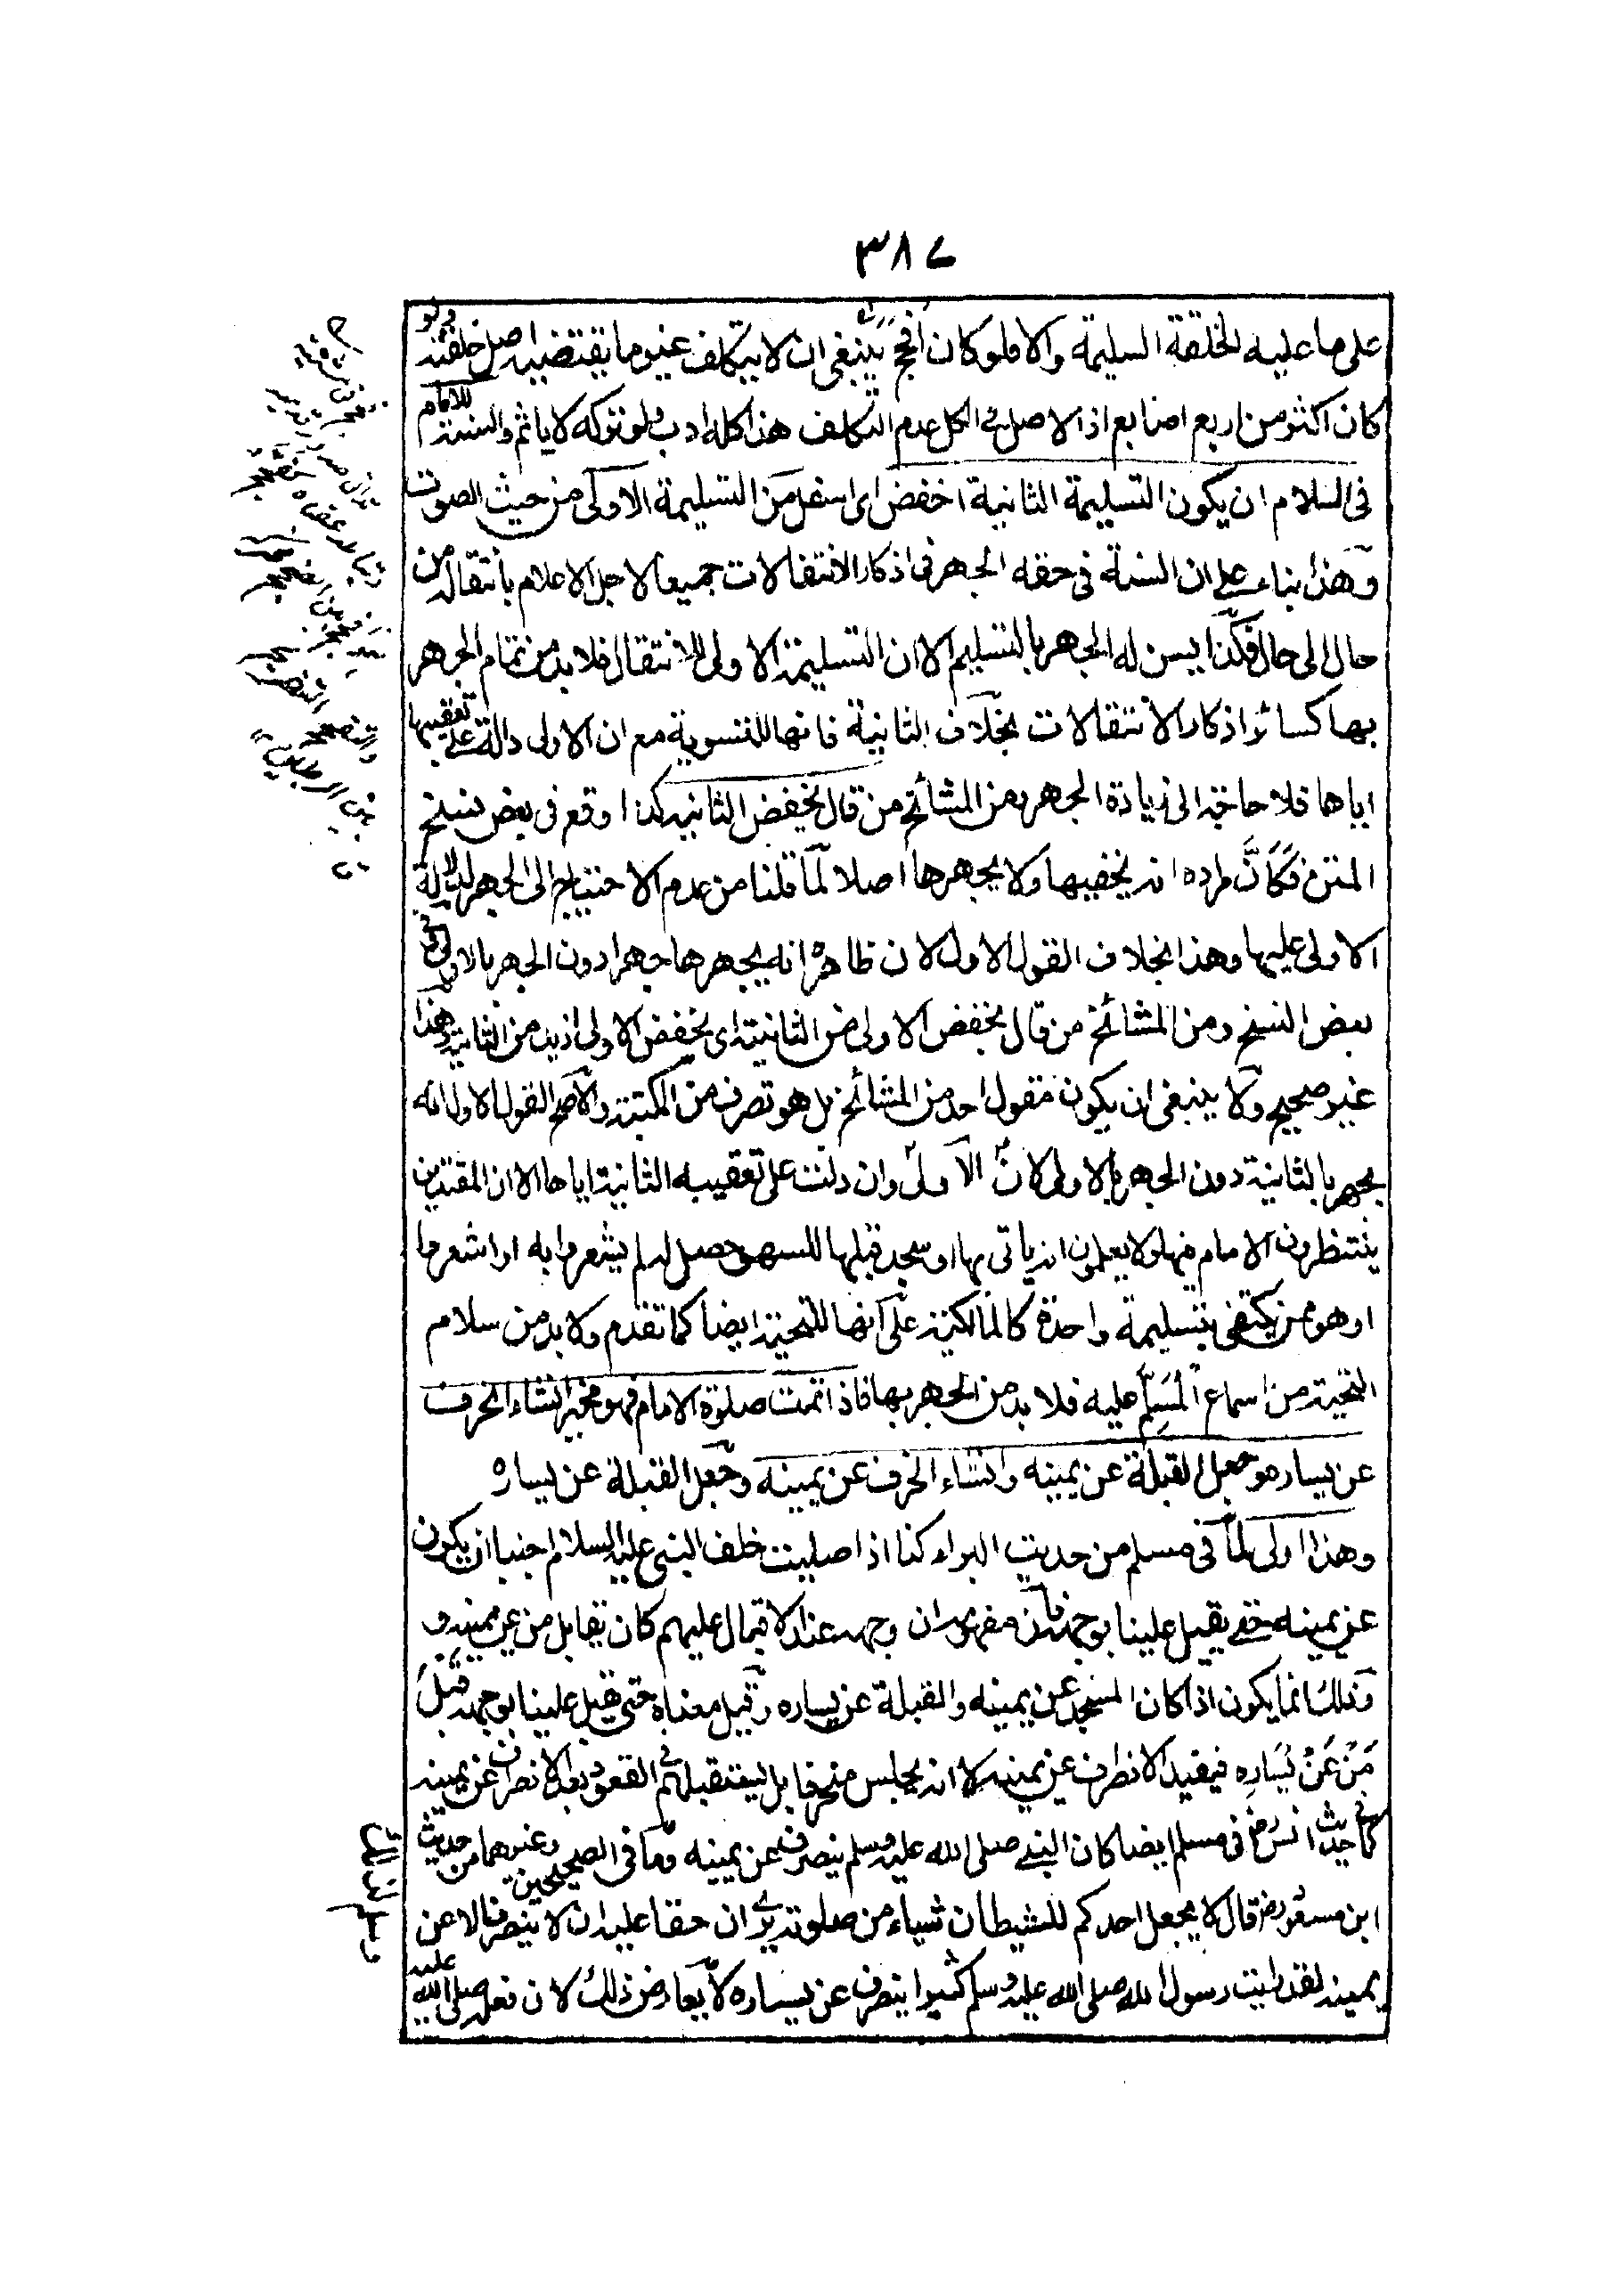 ٣٨٧
على ما عليه الخلقة السليمة والا فلو كان افحج ينبغي ان لا يتكلف غير ما يقتضيه اصل خلقته ولو
كان اكثر من اربع اصابع اذ الاصل في الكل عدم التكلف هذا كله ادب ولو تركه لا ياثم والسنة للامام
في السلام ان يكون التسليمة الثانية اخفض اى اسفل من التسليمة الاولى من حيث الصوت
وهذا بناء على ان السنة في حقه الجهر في اذكار الانتقالات جميعا لاجل الاعلام بانتقاله من
حال الى حال فكذا يسن له الجهر بالتسليم الا ان التسليمة الاولى للانتقال فلا بد من تمام الجهر
بها كسائر اذكار الانتقالات بخلاف الثانية فانها للتسوية مع ان الاولى دالة على تعقيبها
اياها فلا حاجة الى زيادة الجهر ومن المشائخ من قال يخفض الثانية كذا وقع في بعض نسخ
المتن فكان مراده انه يخفيها ولا يجهرها اصلا لما قلنا من عدم الاحتياج الى الجهر لدلالة
الاولى عليها وهذا بخلاف القول الاول لان ظاهره انه يجهرها جهرا دون الجهر بالاولى وفي
بعض النسخ ومن المشائخ من قال يخفض الاولى من الثانية اى يخفض الاولى ازيد من الثانية وهذا
غير صحيح ولا ينبغي ان يكون مقول احد من المشائخ بل هو تصرف من الكتبة والاصح القول الاول انه
يجهر بالثانية دون الجهر بالاولى لان الاولى وان دلت على تعقيبه الثانية اياها الا ان المقتدين
ينتظرون الامام فيها ولا يعلمون انه ياتى بها او سجد قبلها للسهو حصل له لم يشعروا به او اشعروا
او هو ممن يكتفي بتسليمة واحدة كالمالكية على انها للتحية ايضا كما تقدم ولا بد من سلام
التحية من اسماع المسلم عليه فلا بد من الجهر بها فاذا تمت صلوة الامام فهو مخير ان شاء انحرف
عن يساره وجعل القبلة عن يمينه وان شاء انحرف عن يمينه وجعل القبلة عن يساره
وهذا اولى لما في مسلم من حديث البراء كنا اذا صلينا خلف النبي عليه السلام احببنا ان يكون
عن يمينه حتى يقبل علينا بوجهه فان مفهومه ان وجهه عند الاقبال عليهم كان يقابل من عن يمينه و
وذلك انما يكون اذا كان المسجد عن يمينه والقبلة عن يساره وقيل معناه حتى يقبل علينا بوجهه قبل
من عن يساره فيفيد الانصراف عن يمينه لا انه يجلس منحرفا بل يستقبلهم في القعود بعد الانصراف عن يمينه
كما في حديث انس رض في مسلم ايضا كان النبي صلى الله عليه وسلم ينصرف عن يمينه وما في الصحيحين وغيرهما من حديث
ابن مسعود رض قال لا يجعل احدكم للشيطان شياء من صلوته يرى ان حقا عليه ان لا ينصرف الا عن
يمينه لقد رايت رسول الله صلى الله عليه وسلم كثيرا ينصرف عن يساره لا يعارض ذلك لان فعله صلى الله عليه